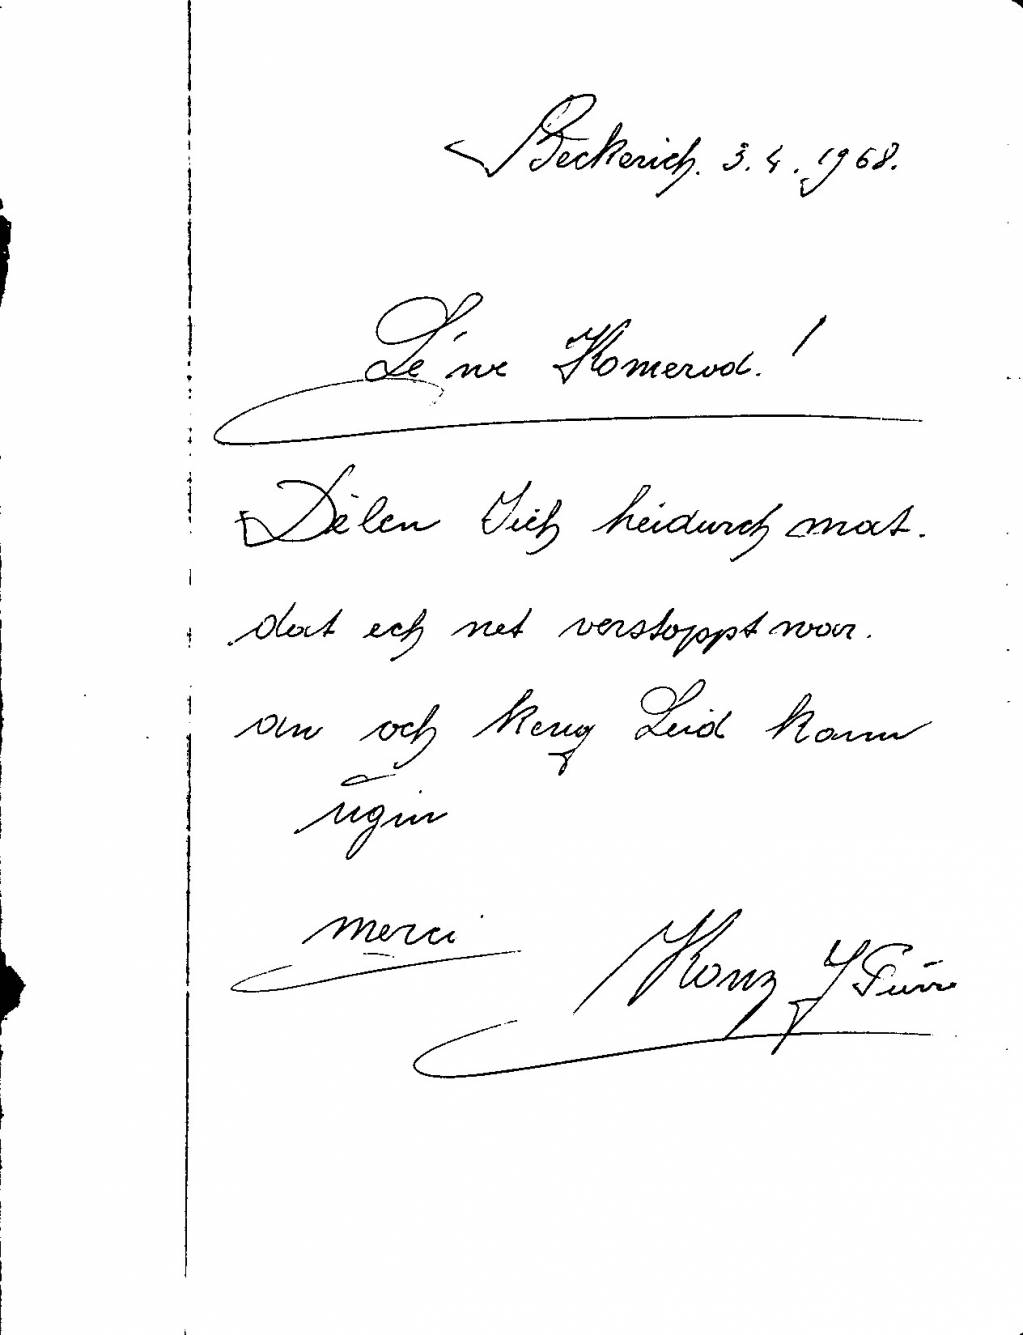 Beckerich. 3.4.1968.
Le'we Komerod!
Dèlen Iech heidurch mat.
dat ech net verstoppt wor.
an och keng Leid kann
ugin
merci
Konz J Pierre